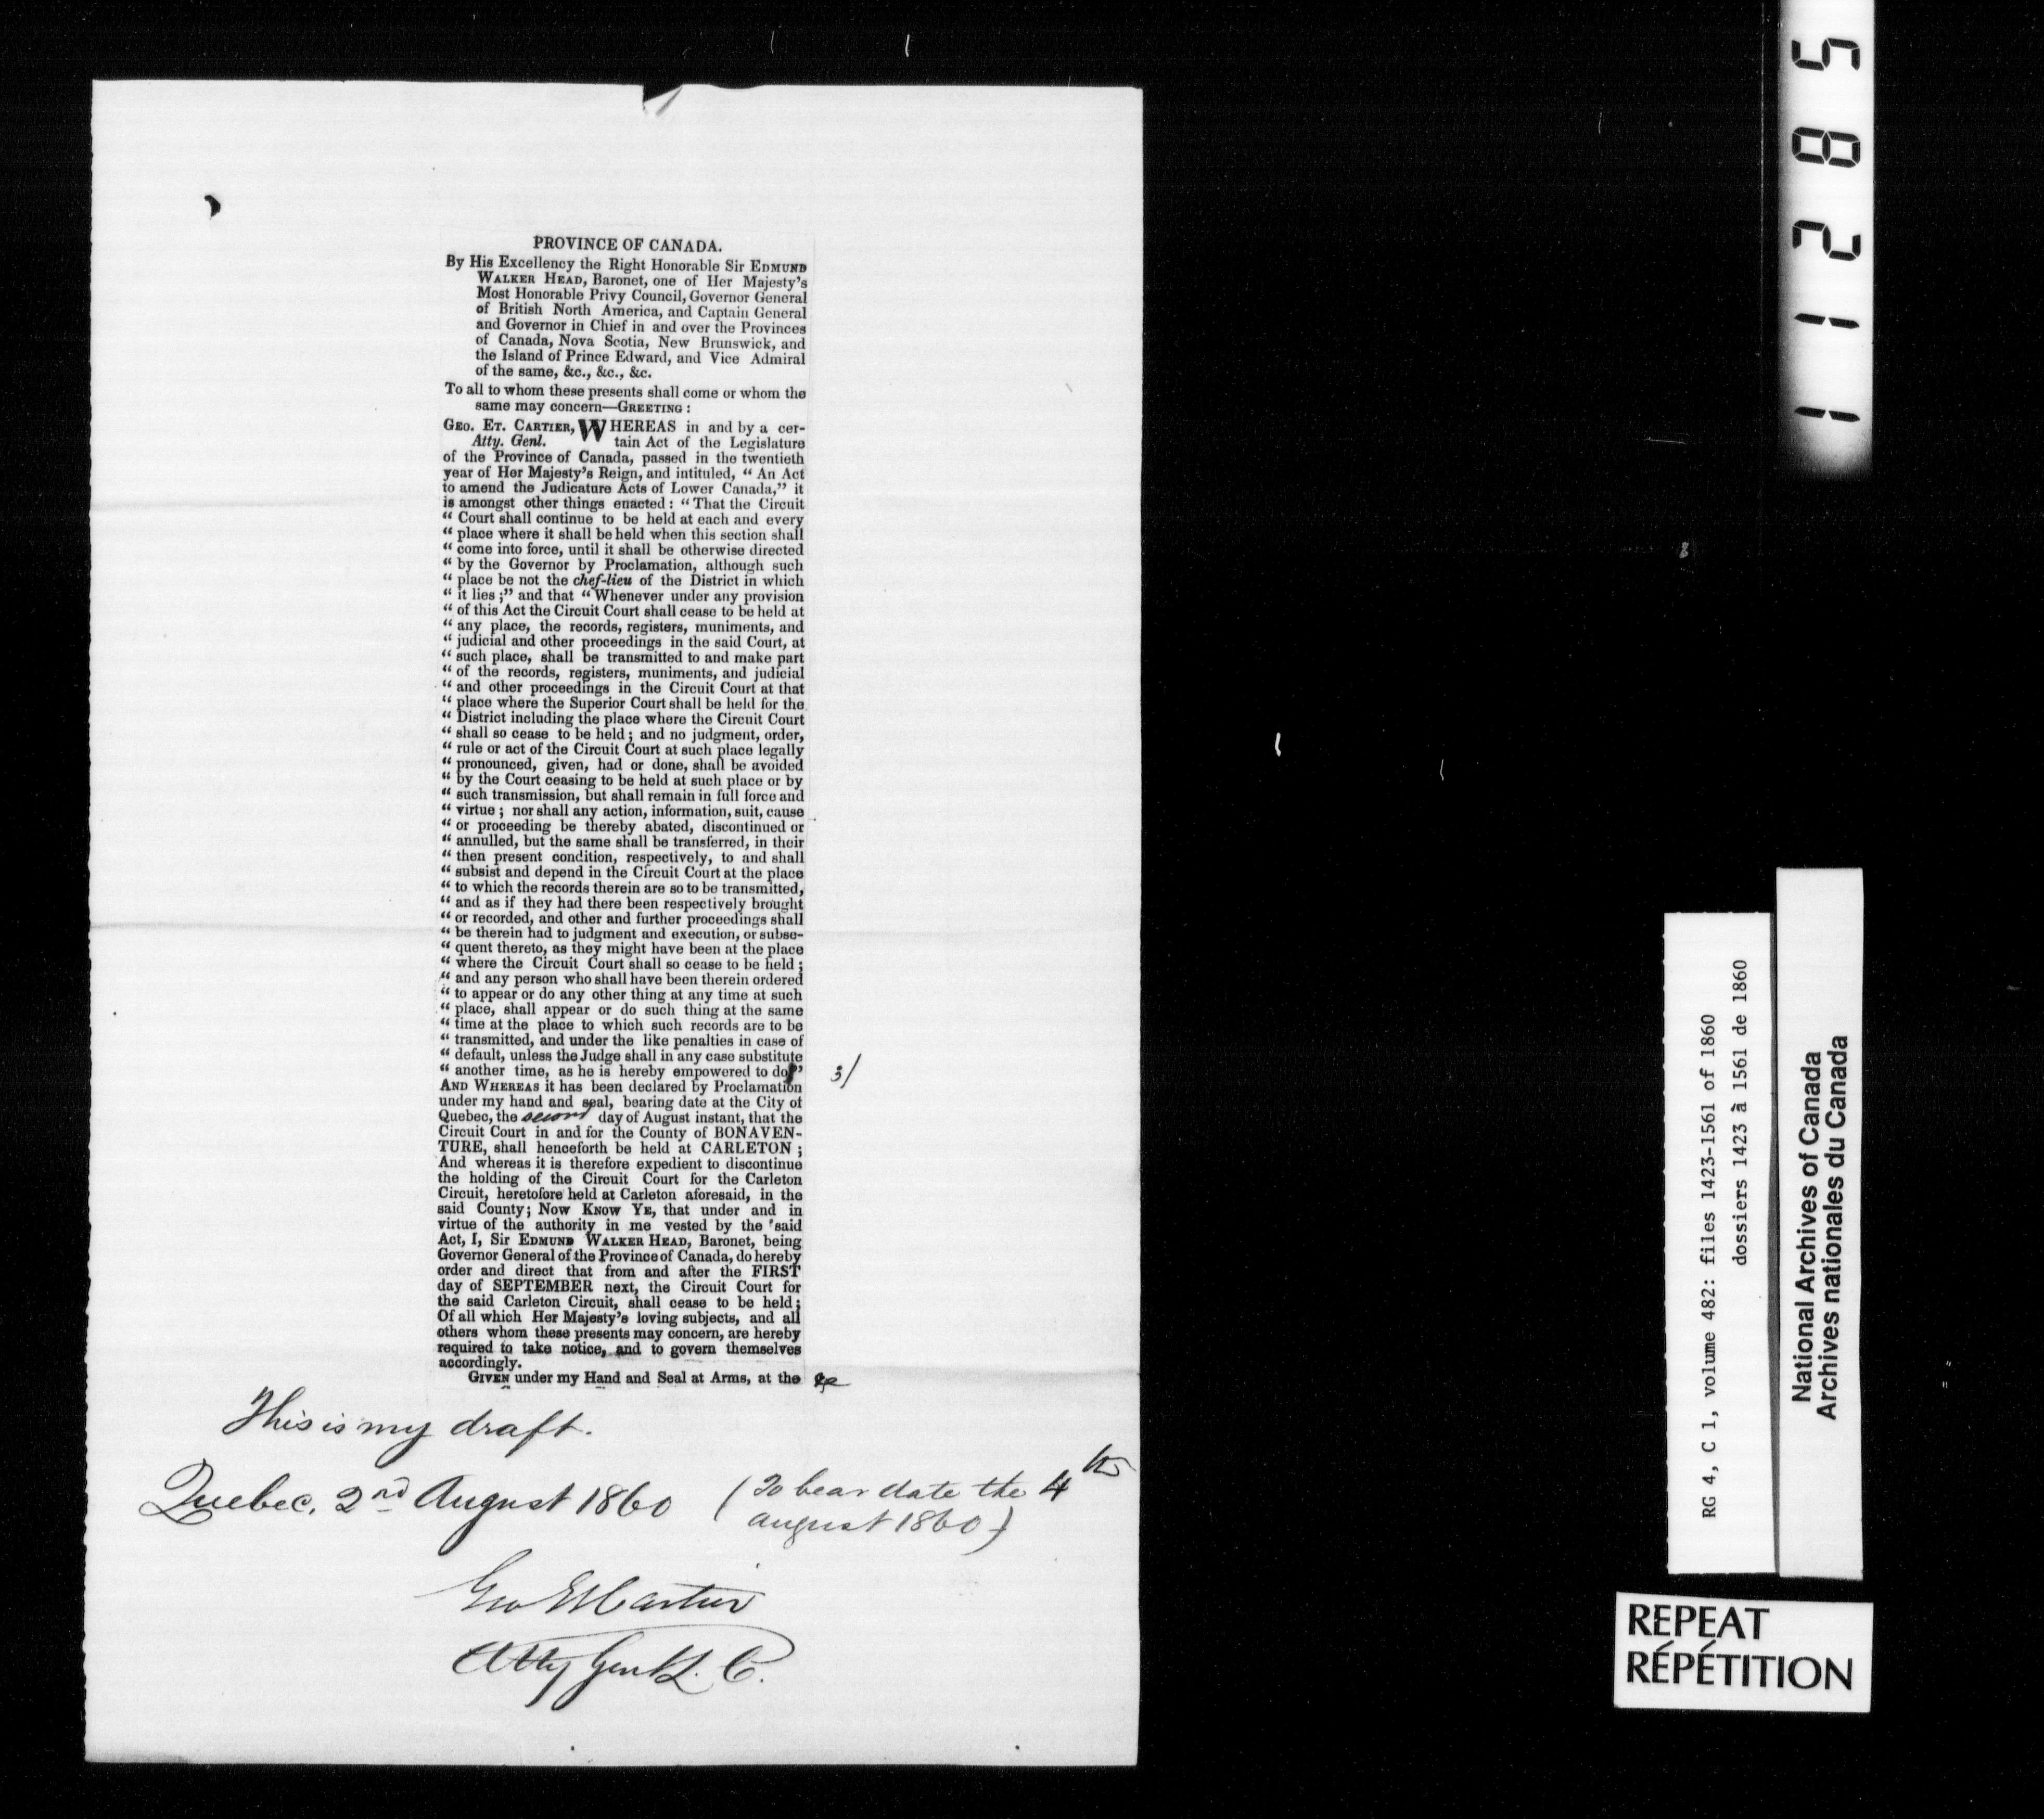 PROVINCE OF CANADA.
By His Excellency the Right Honorable Sir EDMUND
WALKER HEAD, Baronet, one of Her Majesty's
Most Honorable Privy Council, Governor General
of British North America, and Captain General
and Governor in Chief in and over the Provinces
of Canada, Nova Scotia, New Brunswick, and
the Island of Prince Edward, and Vice Admiral
of the same, &c., &c., &c.
To all to whom these presents shall come or whom the
same may concern—GREETING:
GEO. ET. CARTIER, WHEREAS in and by a cer-
Atty. Genl. tain Act of the Legislature
of the Province of Canada, passed in the twentieth
year of Her Majesty's Reign, and intituled, "An Act
to amend the Judicature Acts of Lower Canada," it
is amongst other things enacted: "That the Circuit
"Court shall continue to be held at each and every
"place where it shall be held when this section shall
"come into force, until it shall be otherwise directed
"by the Governor by Proclamation, although such
"place be not the chef-lieu of the District in which
"it lies;" and that "Whenever under any provision
"of this Act the Circuit Court shall cease to be held at
"any place, the records, registers, muniments, and
"judicial and other proceedings in the said Court, at
"such place, shall be transmitted to and make part
"of the records, registers, muniments, and judicial
"and other proceedings in the Circuit Court at that
"place where the Superior Court shall be held for the
"District including the place where the Circuit Court
"shall so cease to be held; and no judgment, order,
"rule or act of the Circuit Court at such place legally
"pronounced, given, had or done, shall be avoided
"by the Court ceasing to be held at such place or by
"such transmission, but shall remain in full force and
"virtue; nor shall any action, information, suit, cause
"or proceeding be thereby abated, discontinued or
"annulled, but the same shall be transferred, in their
"then present condition, respectively, to and shall
"subsist and depend in the Circuit Court at the place
"to which the records therein are so to be transmitted,
"and as if they had there been respectively brought
"or recorded, and other and further proceedings shall
"be therein had to judgment and execution, or subse-
"quent thereto, as they might have been at the place
"where the Circuit Court shall so cease to be held;
"and any person who shall have been therein ordered
"to appear or do any other thing at any time at such
"place, shall appear or do such thing at the same
"time at the place to which such records are to be
"transmitted, and under the like penalties in case of
"default, unless the Judge shall in any case substitute
"another time, as he is hereby empowered to do" 3/
AND WHEREAS it has been declared by Proclamation
under my hand and seal, bearing date at the City of
Quebec, the second day of August instant, that the
Circuit Court in and for the County of BONAVEN-
TURE, shall henceforth be held at CARLETON;
And whereas it is therefore expedient to discontinue
the holding of the Circuit Court for the Carleton
Circuit, heretofore held at Carleton aforesaid, in the
said County; NOW KNOW YE, that under and in
virtue of the authority in me vested by the said
Act, I, Sir EDMUND WALKER HEAD, Baronet, being
Governor General of the Province of Canada, do hereby
order and direct that from and after the FIRST
day of SEPTEMBER next, the Circuit Court for
the said Carleton Circuit, shall cease to be held;
Of all which Her Majesty's loving subjects, and all
others whom these presents may concern, are hereby
required to take notice, and to govern themselves
accordingly.
GIVEN under my Hand and Seal at Arms, at the &c
This is my draft.
Quebec, 2nd August 1860 (To bear date the 4th
august 1860)
Geo Et Cartier
Atty Genl L. C.
11285
RG 4, C 1, volume 482: files 1423-1561 of 1860
dossiers 1423 à 1561 de 1860
National Archives of Canada
Archives nationales du Canada
REPEAT
RÉPÉTITION